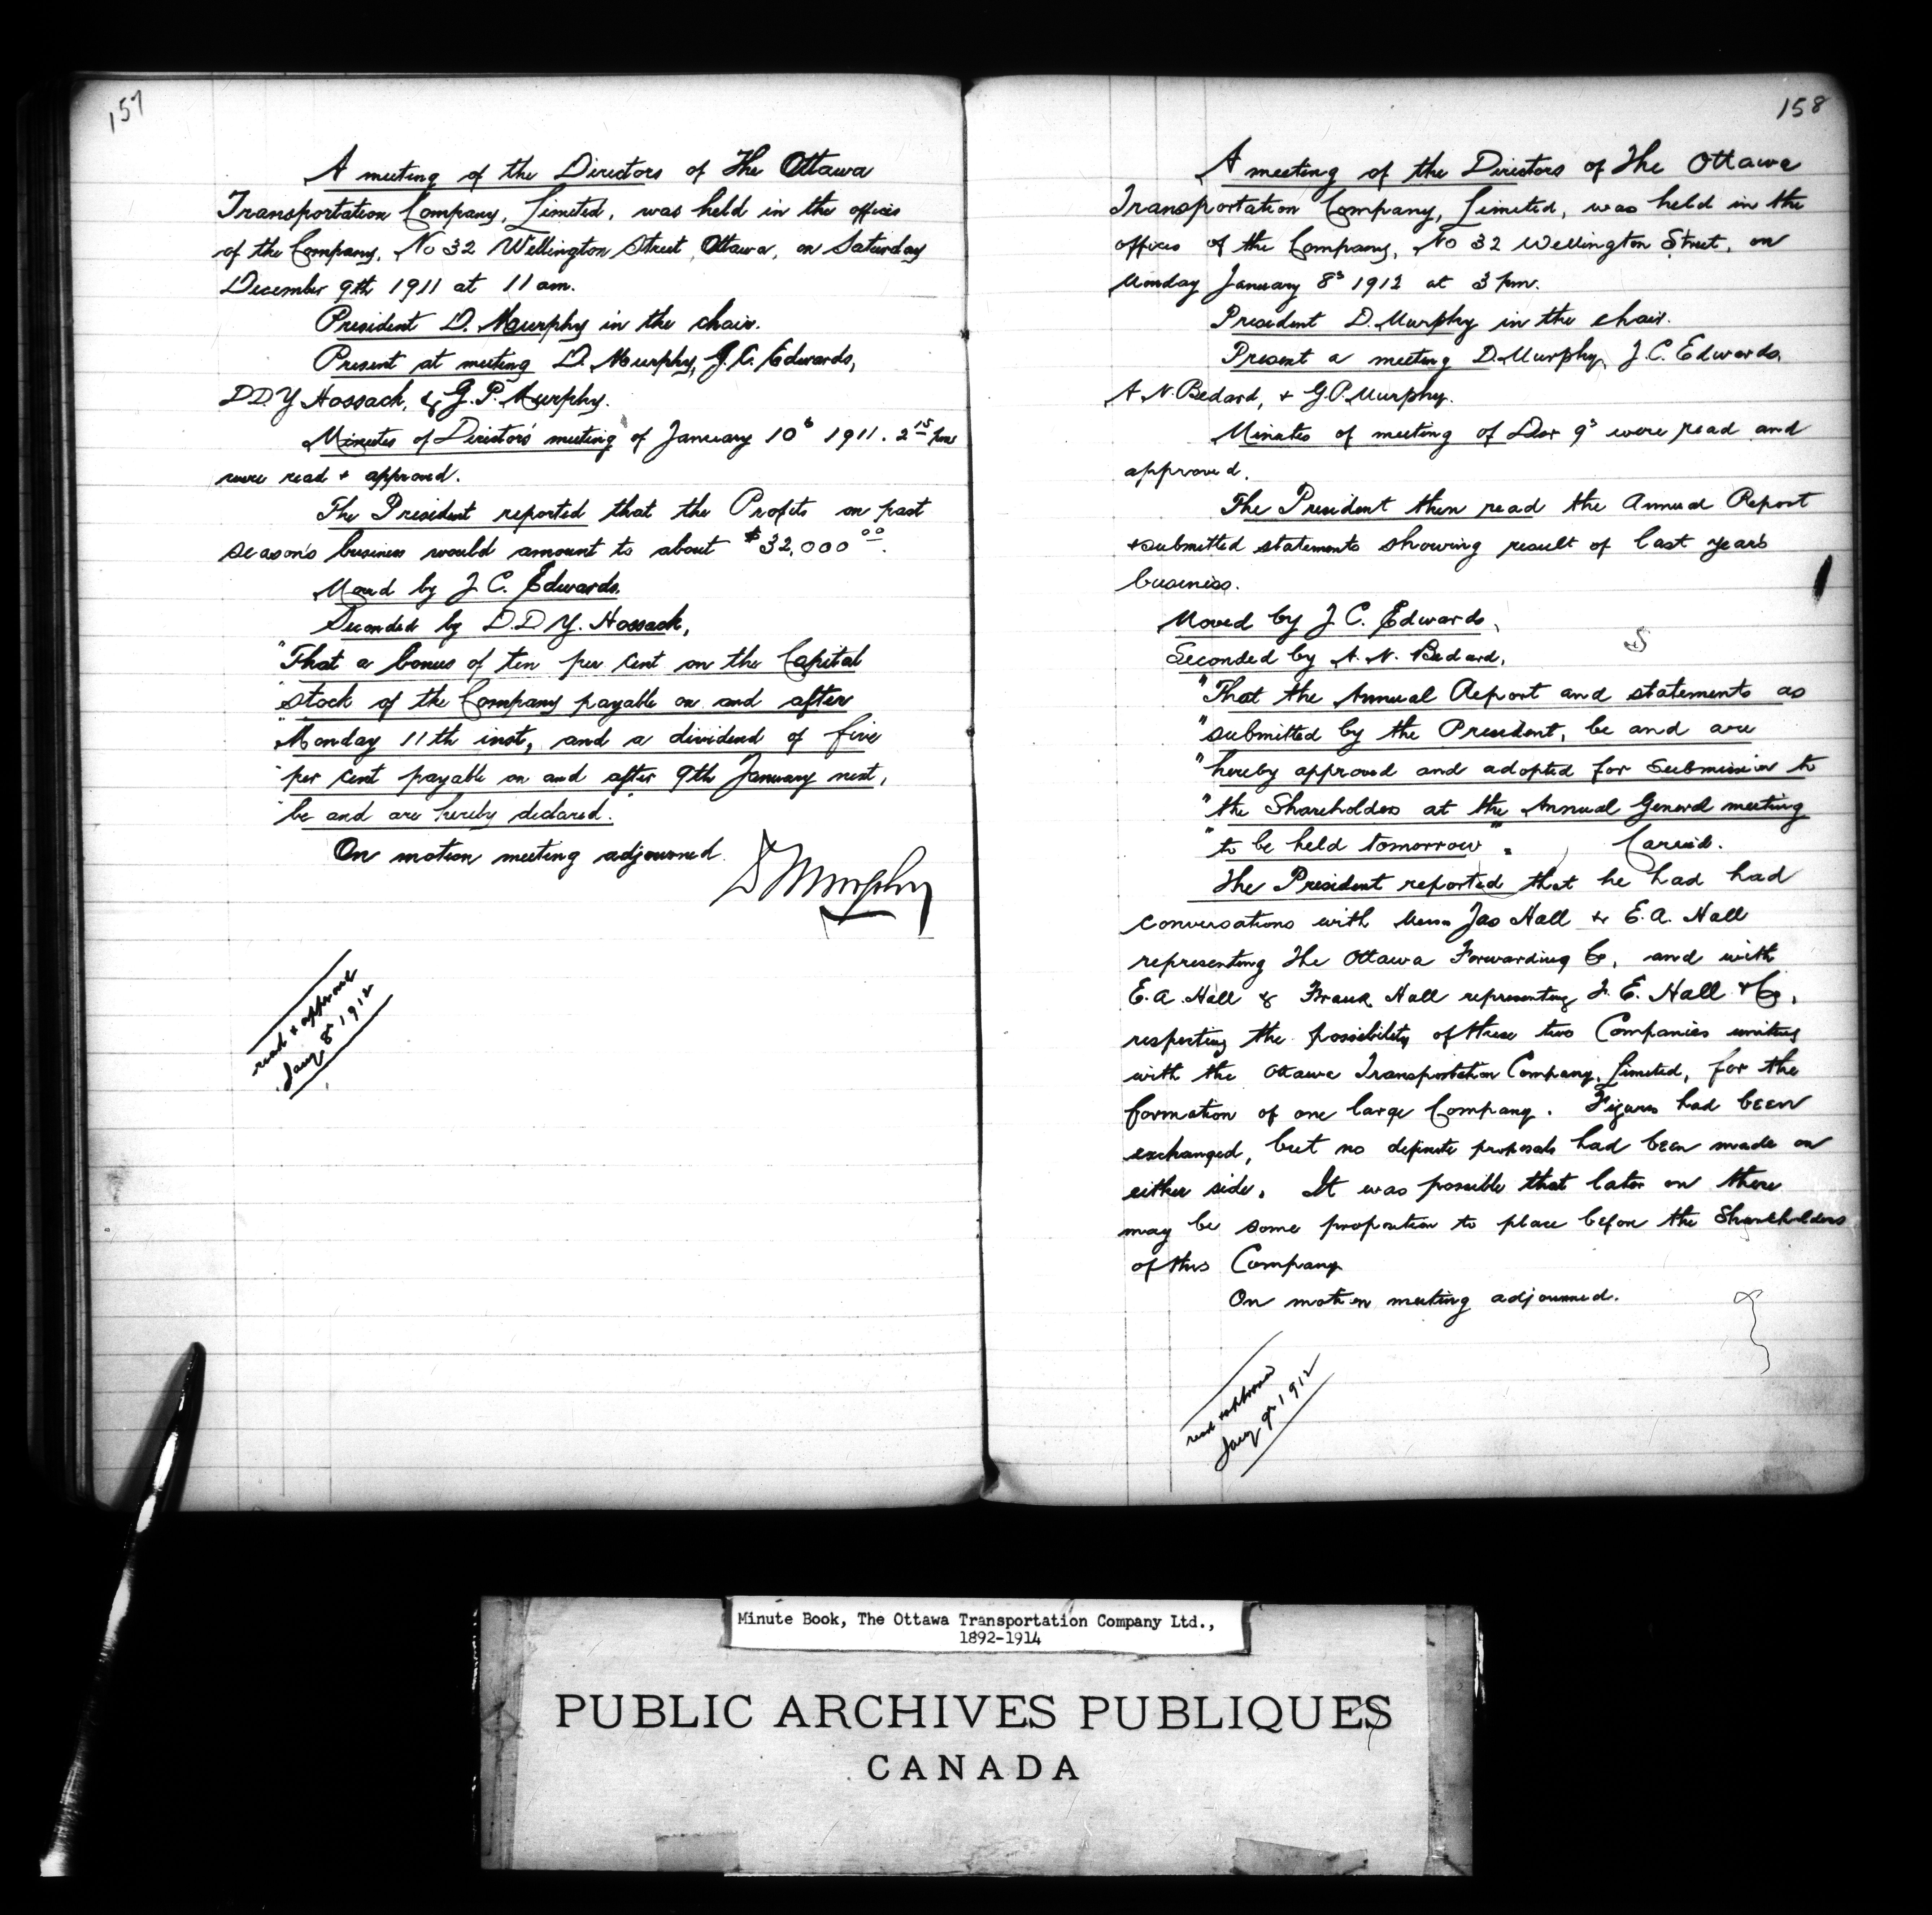 157
A meeting of the Directors of The Ottawa
Transportation Company, Limited, was held in the offices
of the Company, No 32 Wellington Street, Ottawa, on Saturday
December 9th 1911 at 11 am.
President D. Murphy in the chair.
Present at meeting D. Murphy, J.C. Edwards,
D.D.Y Hossack, & G.P. Murphy.
Minutes of Directors' meeting of January 10th 1911. 2 15 pm
were read + approved.
The President reported that the Profits on past
season's business would amount to about $32,000 00.
Moved by J. C. Edwards,
Seconded by D.D.Y. Hossack,
"That a bonus of ten per cent on the Capital
"stock of the Company payable on and after
"Monday 11th inst, and a dividend of five
"per cent payable on and after 9th January next,
"be and are hereby declared.
On motion meeting adjourned.
D Murphy
read + approved
Jany 8th 1912
158
A meeting of the Directors of The Ottawa
Transportation Company, Limited, was held in the
offices of the Company, No 32 Wellington Street, on
Monday January 8th 1912 at 3 pm.
President D. Murphy in the chair.
Present a meeting D. Murphy, J.C. Edwards,
A.N. Bedard, + G.P. Murphy.
Minutes of meeting of Dec 9th were read and
approved.
The President then read the Annual Report
+ submitted statements showing result of last years
business.
Moved by J. C. Edwards,
Seconded by A. N. Bedard,
"That the Annual Report and statements as
"submitted by the President, be and are
"hereby approved and adopted for submission to
"the Shareholders at the Annual General meeting
"to be held tomorrow". Carried.
The President reported that he had had
conversations with Messrs Jas Hall & E.A. Hall
representing The Ottawa Forwarding Co, and with
E.A. Hall & Frank Hall representing J. E. Hall & Co,
respecting the possibility of these two Companies uniting
with the Ottawa Transportation Company, Limited, for the
formation of one large Company. Figures had been
exchanged, but no definite proposals had been made on
either side. It was possible that later on there
may be some proposition to place before the Shareholders
of this Company
On motion meeting adjourned.
read + approved
Jany 9th 1912
Minute Book, The Ottawa Transportation Company Ltd.,
1892-1914
PUBLIC ARCHIVES PUBLIQUES
CANADA